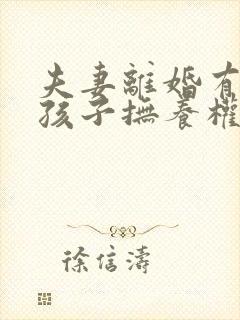 夫妻離婚有
孩子撫養權
徐信濤